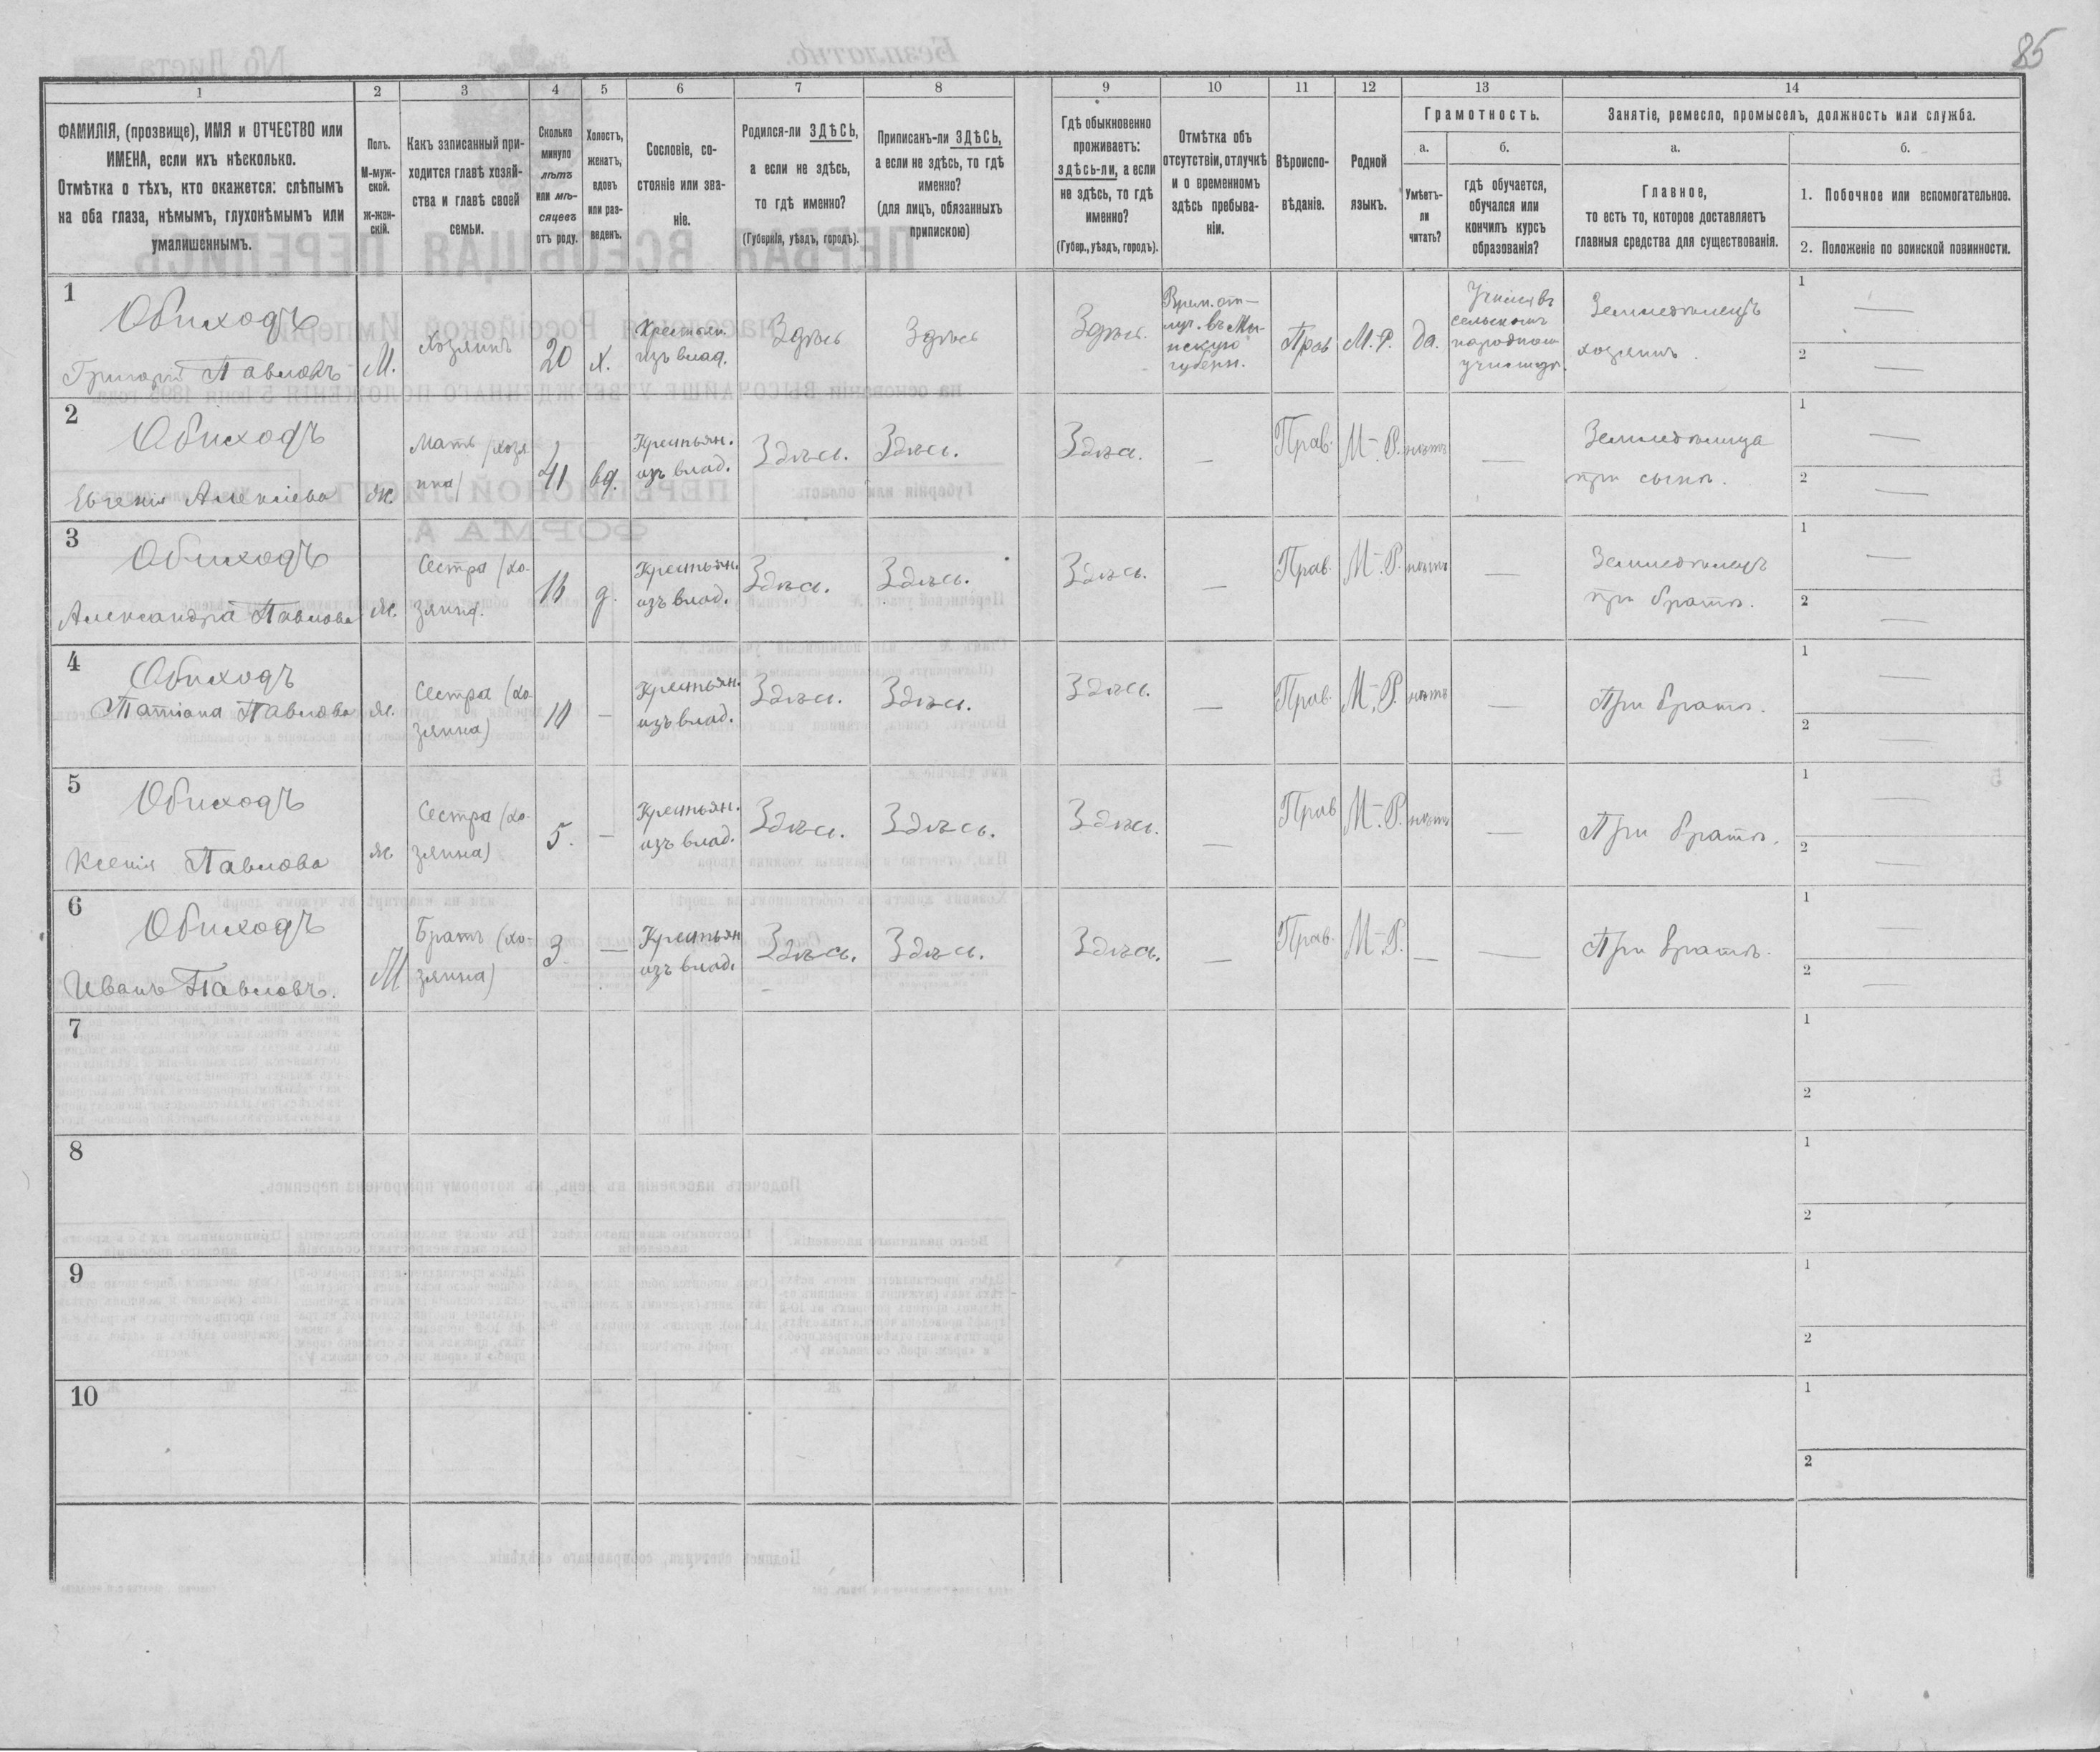 85
1 2 3 4 5 6 7 8 9 10 11 12 13 14
ФАМИЛІЯ, (прозвище), ИМЯ и ОТЧЕСТВО или
ИМЕНА, если ихъ нѣсколько.
Отмѣтка о тѣхъ, кто окажется: слѣпымъ
на оба глаза, нѣмымъ, глухонѣмымъ или
умалишеннымъ.
Полъ.
М-муж-
ской.
ж-жен-
скій.
Какъ записанный при-
ходится главѣ хозяй-
ства и главѣ своей
семьи.
Сколько
минуло
лѣтъ
или мѣ-
сяцевъ
отъ роду.
Холостъ,
женатъ,
вдовъ
или раз-
веденъ.
Сословіе, со-
стояніе или зва-
ніе.
Родился-ли ЗДѢСЬ,
а если не здѣсь,
то гдѣ именно?
(Губернія, уѣздъ, городъ).
Приписанъ-ли ЗДѢСЬ,
а если не здѣсь, то гдѣ
именно?
(для лицъ, обязанныхъ
припискою)
Гдѣ обыкновенно
проживаетъ:
здѣсь-ли, а если
не здѣсь, то гдѣ
именно?
(Губер., уѣздъ, городъ).
Отмѣтка объ
отсутствіи, отлучкѣ
и о временномъ
здѣсь пребыва-
ніи.
Вѣроиспо-
вѣданіе.
Родной
языкъ.
Грамотность.
а.
Умѣетъ-
ли
читать?
б.
гдѣ обучается,
обучался или
кончилъ курсъ
образованія?
Занятіе, ремесло, промыселъ, должность или служба.
а.
Главное,
то есть то, которое доставляетъ
главныя средства для существованія.
б.
1. Побочное или вспомогательное.
2. Положеніе по воинской повинности.
1
Обиходъ
Григорій Павловъ
М.
Хозяинъ
20
х.
Крестьян.
изъ влад.
Здѣсь
Здѣсь
Здѣсь.
Врем. от-
луч. въ Ми-
нскую
губерн.
Прав
М.-Р.
да.
сельскомъ
народномъ
Земледѣлецъ
хозяинъ.
1 —
2 —
2
Обиходъ
Евгенія Алексіева
ж.
Мать /хозя
ина/
41
вд.
Крестьян.
изъ влад.
Здѣсь.
Здѣсь.
Здѣсь.
—
Прав.
М-Р.
нѣтъ
—
Земледѣлица
при сынѣ.
1 —
2 —
3
Обиходъ
Александра Павлова
ж.
Сестра (хо-
зяина).
д.
Крестьян.
изъ влад.
Здѣсь.
Здѣсь.
Здѣсь.
—
Прав.
М-Р.
нѣтъ
—
Земледѣлецъ
при братѣ.
1 —
2 —
4
Обиходъ
Татіана Павлова
ж.
Сестра (хо-
зяина)
—
Крестьян.
изъ влад.
Здѣсь.
Здѣсь.
Здѣсь.
—
Прав.
М-Р.
нѣтъ
—
При братѣ.
1 —
2 —
5
Обиходъ
Ксенія Павлова
ж.
Сестра (хо-
зяина)
5.
—
Крестьян.
изъ влад.
Здѣсь.
Здѣсь.
Здѣсь.
—
Прав
М-Р.
нѣтъ
—
При братѣ.
1 —
2 —
6
Обиходъ
Иванъ Павловъ.
М
Братъ (хо-
зяина)
3.
—
Крестьян
изъ влад.
Здѣсь.
Здѣсь.
Здѣсь.
—
Прав.
М-Р.
—
—
При братѣ.
1 —
2 —
7
1
2
8
1
2
9
1
2
10
1
2